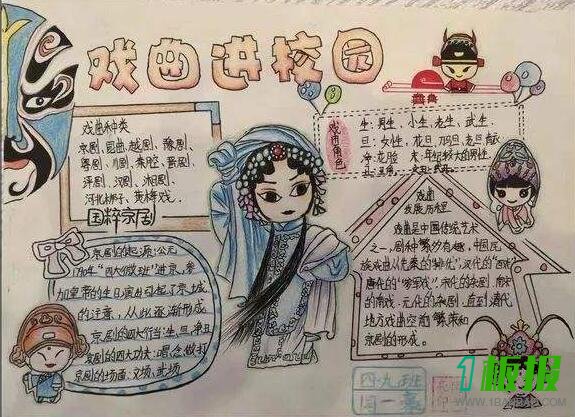 戏曲进校园
戏曲种类
京剧、昆曲、越剧、豫剧、
粤剧、川剧、秦腔、晋剧、
评剧、汉剧、湘剧、
河北梆子、黄梅戏、
国粹京剧
京剧的起源:公元
1790年"四大徽班"进京,参
加皇帝的生日演出引起了京城
的注意,从此逐渐形成
京剧的四大行当:生、旦、净、丑
京剧的四大功夫:唱、念、做、打
京剧的场面:文场、武场
戏曲角色
生:男生、小生、老生、武生、
旦:女性、花旦、刀马旦、老旦
净:花脸 末:年纪较大的男性、
丑:丑角
戏曲
发展历程
戏曲是中国传统艺术
之一,剧种繁多有趣,中国民
族戏曲从先秦的"俳优"、汉代的"百戏"
唐代的"参军戏"、宋代的杂剧、南宋
的南戏、元代的杂剧,直到清代
地方戏曲空前繁荣和
京剧的形成。
四九班
周一
1板报